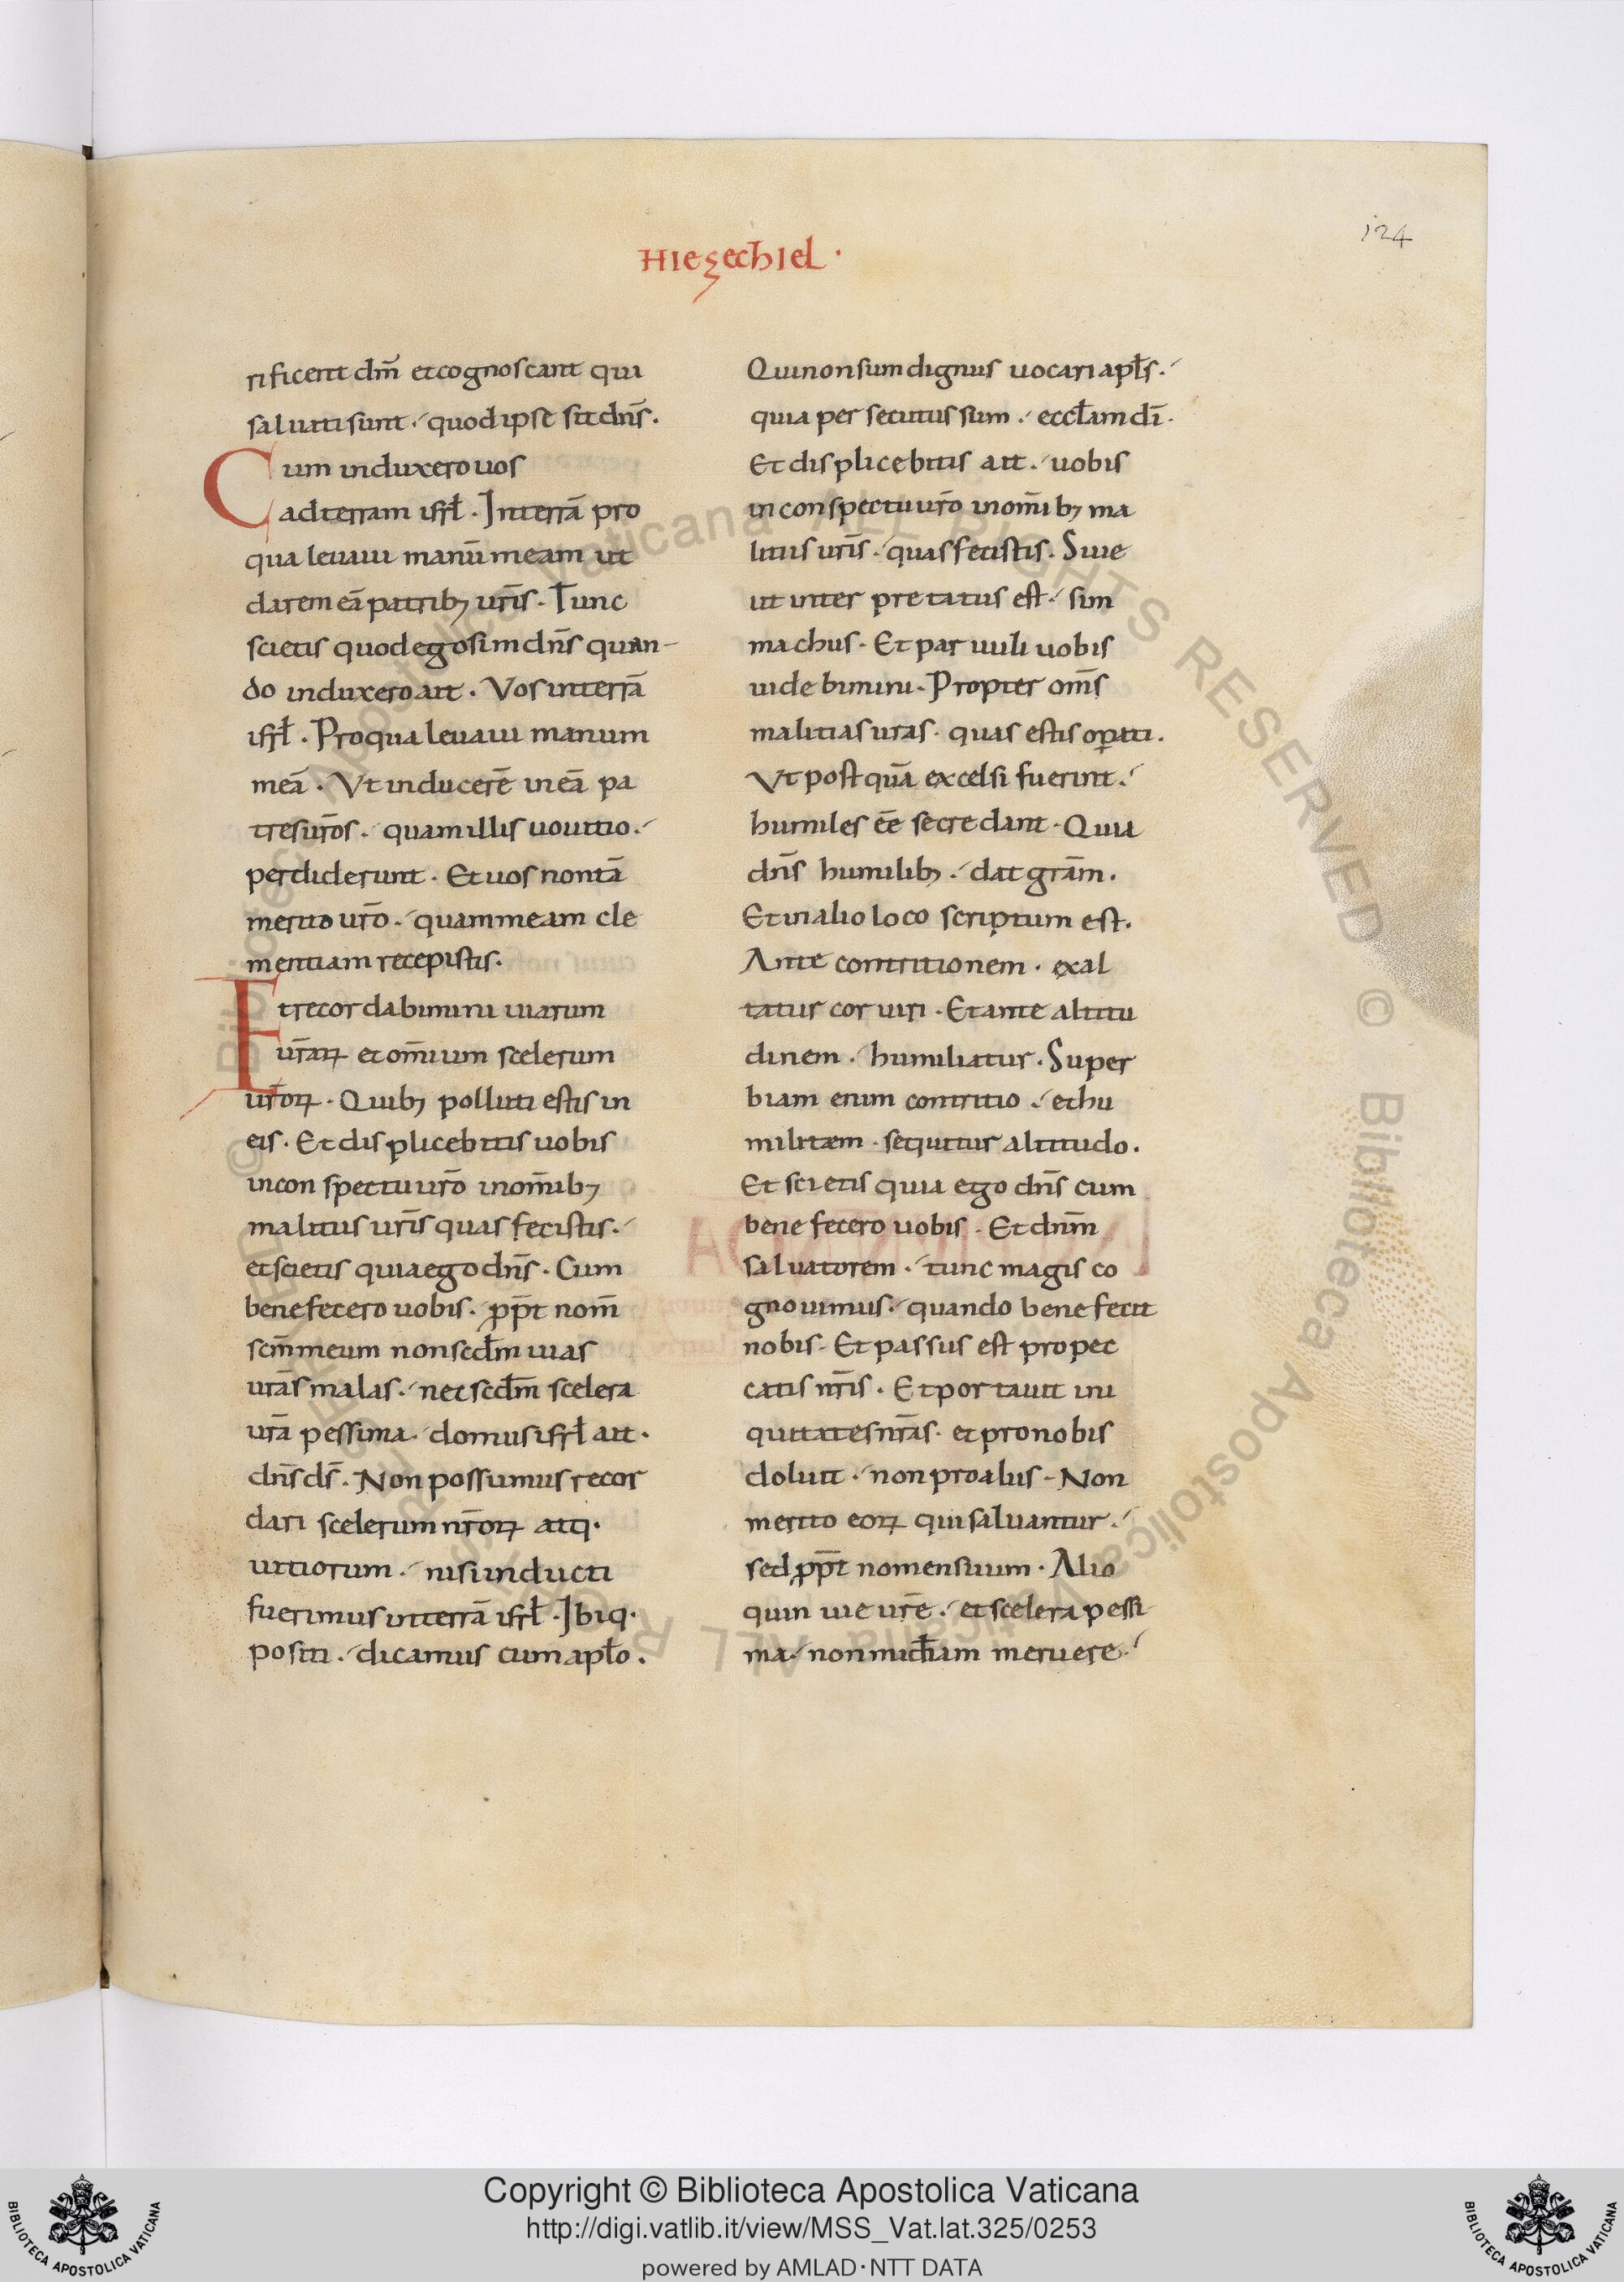 124
HIEZECHIEL ·
rificent dm̄ et cognoscant qui
saluati sunt · quod ipse sit dn̄s.
Cum induxero uos
ad terram isrl̄ · In terrā pro
qua leuaui manū meam ut
darem eā patrib; ur̄is · Tunc
scietis quod ego sim dn̄s quan-
do induxero ait · Vos in terrā
isrl̄ · Pro qua leuaui manum
meā · Vt inducerē in eā pa
tres ur̄os · quam illi suo uitio ·
perdiderunt · Et uos non tā
merito ur̄o · quam meam cle
mentiam recepistis.
Et recordabimini uiarum
ur̄arꝝ et om̄ium scelerum
ur̄orꝝ · Quib; polluti estis in
eis · Et displicebitis uobis
in conspectu ur̄o in om̄ib;
malitiis ur̄is quas fecistis ·
et scietis quia ego dn̄s · Cum
benefecero uobis · pp̄t nom̄
scm̄ meum non scd̄m uias
ur̄as malas · nec scd̄m scelera
ur̄a pessima · domus isrl̄ ait ·
dn̄s ds̄ · Non possumus recor
dari scelerum nr̄orꝝ atq·
uitiorum · nisi inducti
fuerimus in terrā isrl̄ · Ibiq·
positi · dicamus cum apl̄o .
Qui non sum dignus uocari apl̄s ·
quia persecutus sum · eccl̄am dī ·
Et displicebitis ait · uobis
in conspectu ur̄o in om̄ib; ma
litiis ur̄is · quas fecistis · Siue
ut interpretatus est · sim
machus · Et paruuli uobis
uidebimini · Propter om̄s
malitias ur̄as · quas estis op̄ati .
Vt postquā excelsi fuerint ·
humiles eē se credant · Quia
dn̄s humilib; · dat grām .
Et in alio loco scriptum est.
Ante contritionem · exal
tatur cor uiri · Et ante altitu
dinem · humiliatur · Super
biam enim contritio · et hu
militatem · sequitur altitudo .
Et scietis quia ego dn̄s cum
benefecero uobis · Et dn̄m
saluatorem · tunc magis co
gnouimus · quando benefecit
nobis · Et passus est pro pec
catis nr̄is · Et portauit ini
quitates nr̄as · et pro nobis
doluit · non pro aliis · Non
merito eorꝝ qui saluantur ·
sed pp̄t nomen suum · Alio
quin uie ur̄e · et scelera pessi
ma · non mid̄iam meruere ·
Copyright © Biblioteca Apostolica Vaticana
http://digi.vatlib.it/view/MSS_Vat.lat.325/0253
powered by AMLAD·NTT DATA